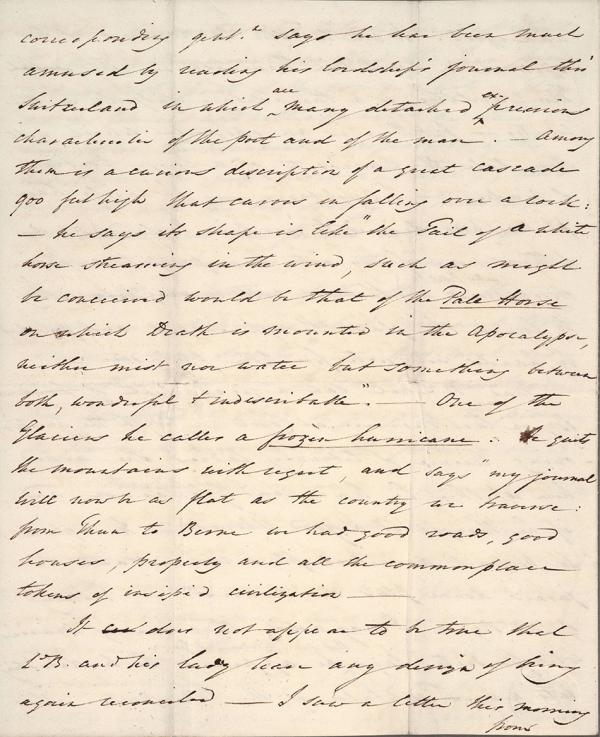 corresponding gent.n says he has been much
amused by reading his lordship's journal thro
Switzerland in which are many detached expressions
characteristic of the poet and of the man. — Among
them is a curious description of a great cascade
900 feet high that curves in falling over a rock:
— he says its shape is like "the Tail of a white
horse streaming in the wind, such as might
be conceived would be that of the Pale Horse
on which Death is mounted in the Apocalypse,
neither mist nor water but something between
both, wonderful & indescribable". — One of the
Glaciers he calls a frozen hurricane. He quits
the mountains with regret, and says "my journal
will now be as flat as the country we traverse:
from Thun to Berne we had good roads, good
houses, property and all the commonplace
tokens of insipid civilization —
It does not appear to be true that
Ld B. and his lady have any design of being
again reconciled — I saw a letter this morning
from